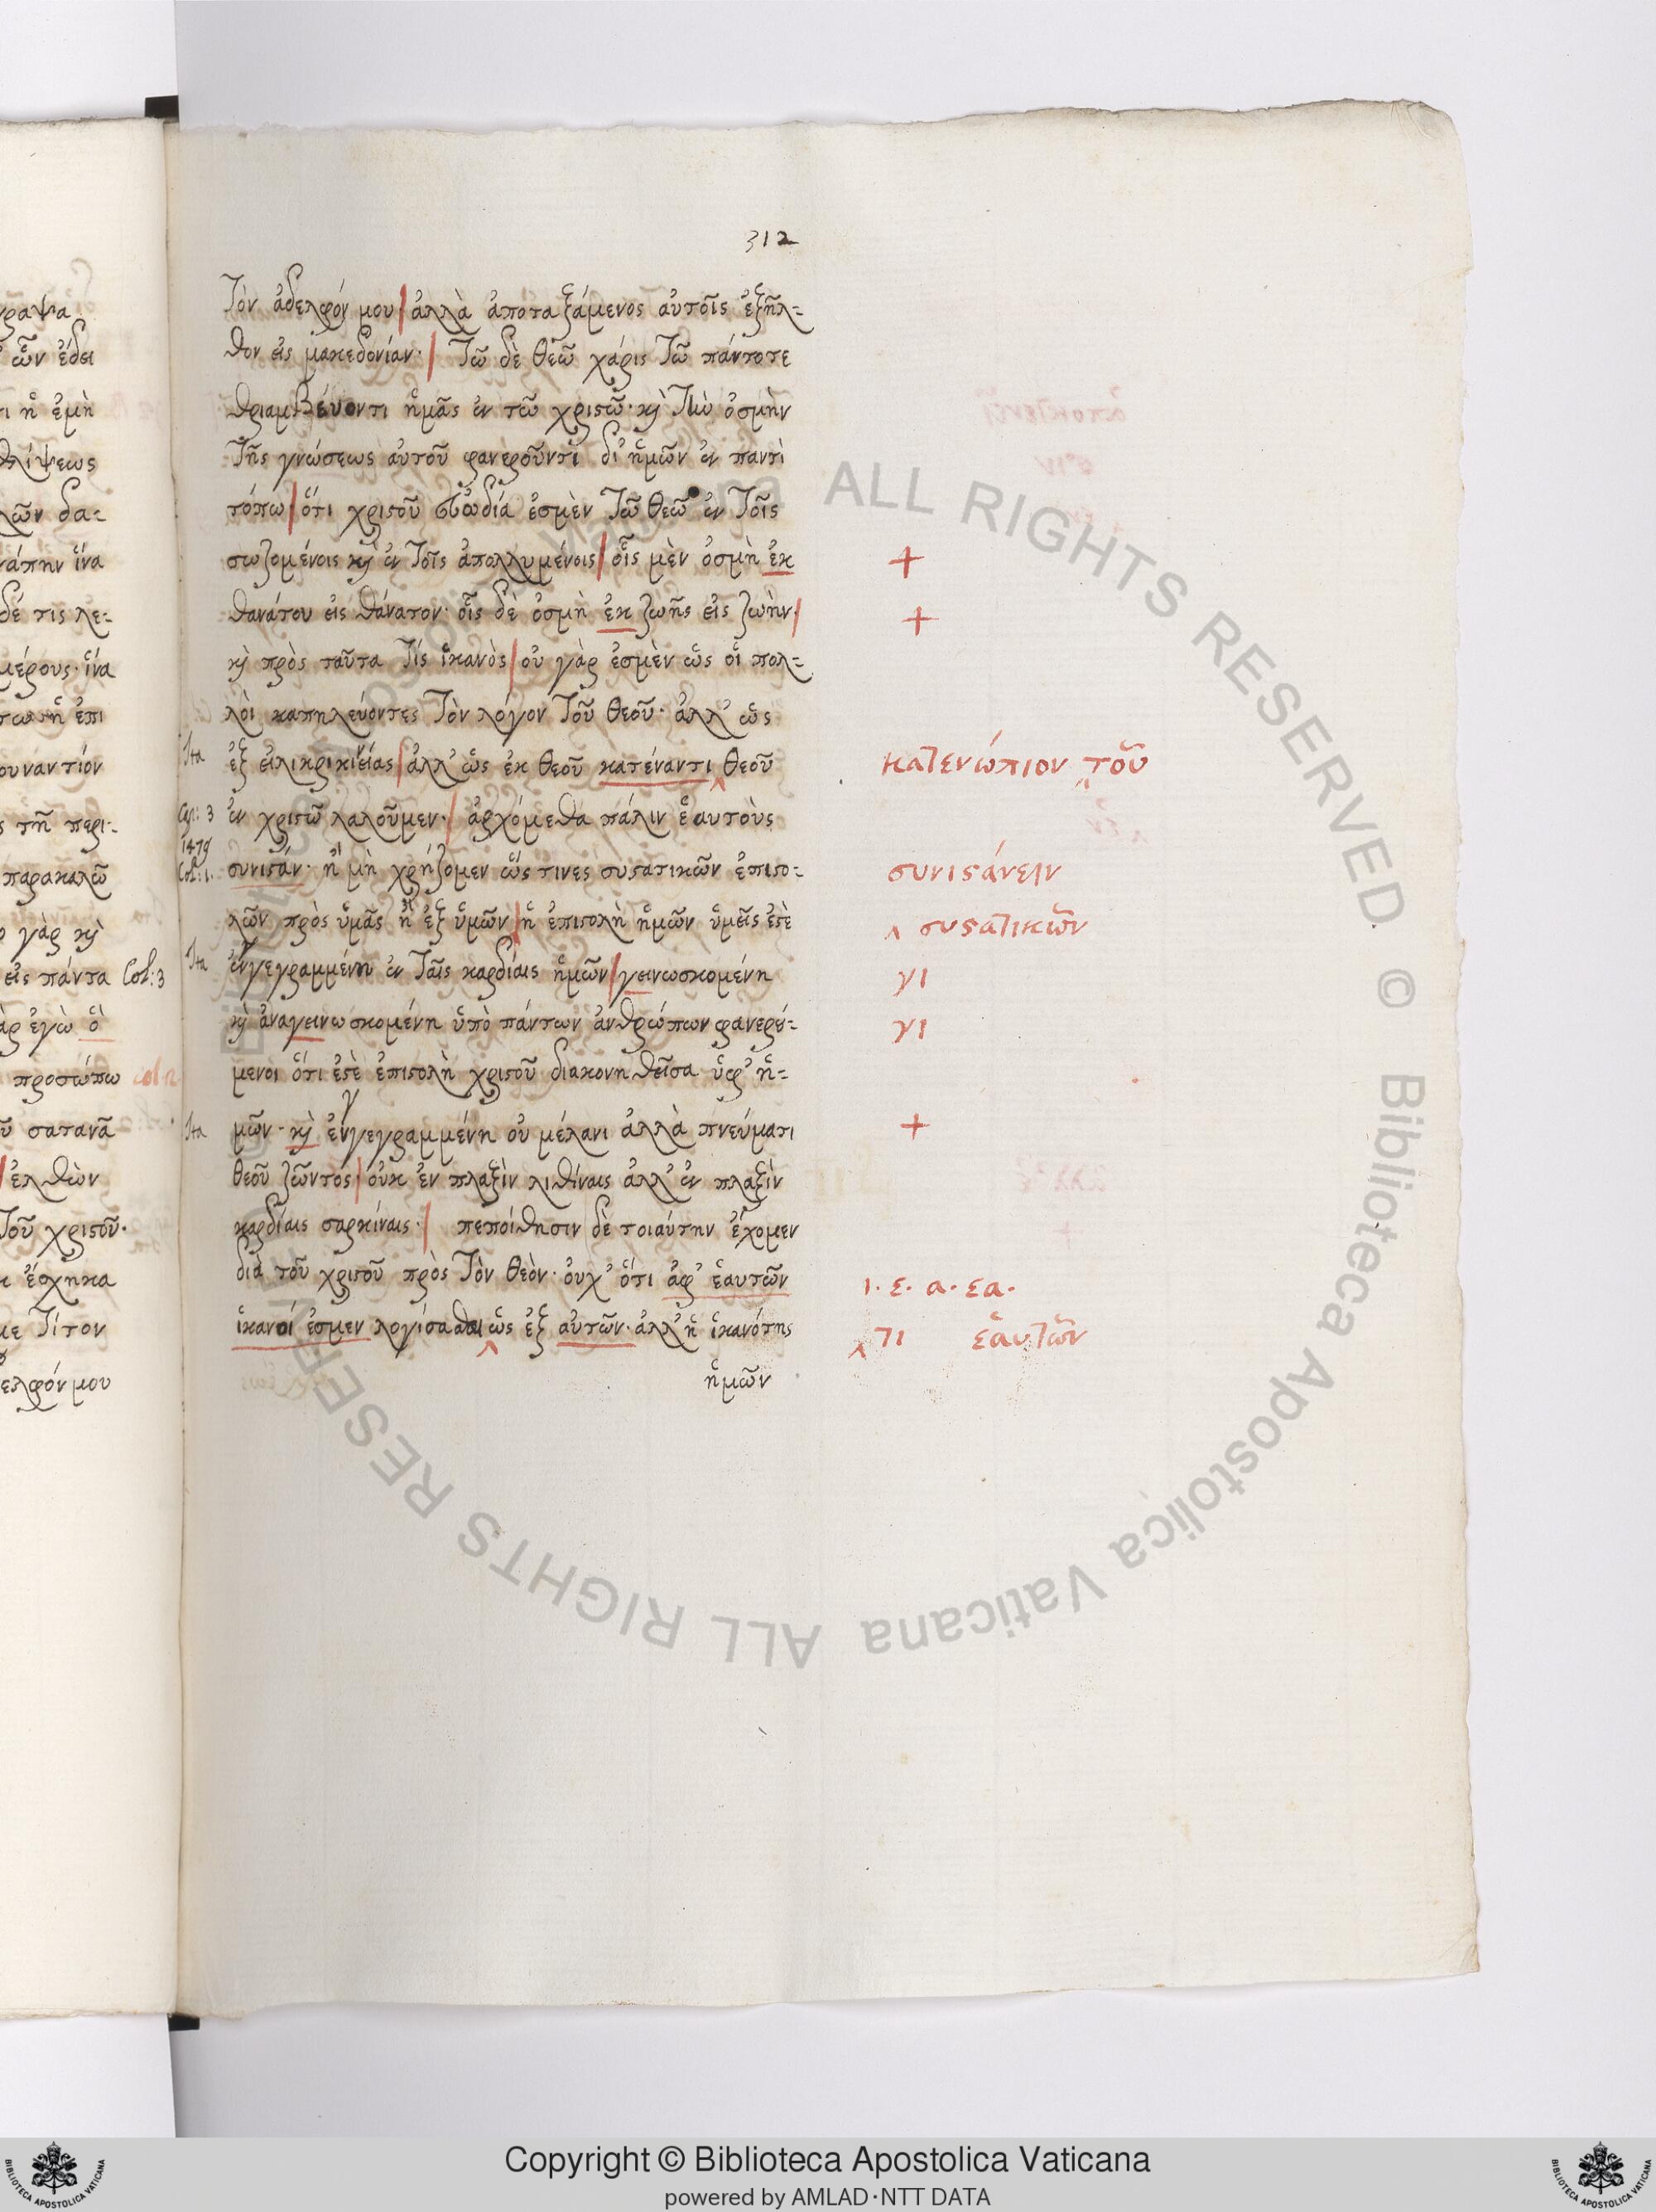 312
τὸν ἀδελφόν μου ἀλλὰ ἀποταξάμενος αὐτοῖς ἐξῆλ-
θον εἰς μακεδονίαν· τῶ δὲ θεῶ χάρις τῶ πάντοτε
θριαμβεύοντι ἡμᾶς ἐν τῶ χριστῶ· κὶ τὴν ὀσμὴν
τῆς γνώσεως αὐτοῦ φανεροῦντι δι᾽ ἡμῶν ἐν παντὶ
τόπω ὅτι χριστοῦ εὐωδία ἐσμὲν τῶ θεῶ ἐν τοῖς
σωζομένοις κὶ ἐν τοῖς ἀπολλυμένοις οἷς μὲν ὀσμὴ ἐκ +
θανάτου εἰς θάνατον· οἷς δὲ ὀσμὴ ἐκ ζωῆς εἰς ζωὴν· +
κὶ πρὸς ταῦτα τίς ἱκανὸς οὐ γάρ ἐσμὲν ὡς οἱ πολ-
λοὶ καπηλεύοντες τὸν λόγον τοῦ θεοῦ· ἀλλ᾽ ὡς
Ita ἐξ εἰλικρινείας ἀλλ᾽ ὡς ἐκ θεοῦ κατέναντι ‸ θεοῦ κατενώπιον ‸ τοῦ
Cap: 3 ἐν χριστῶ λαλοῦμεν· ἀρχόμεθα πάλιν ἑαυτοὺς
1479
Col: 1. συνιστάν· ἢ μὴ χρήζομεν ὥς τινες συστατικῶν ἐπιστο- συνιστάνειν
λῶν πρὸς ὑμᾶς ἢ ἐξ ὑμῶν ἡ ἐπιστολὴ ἡμῶν ὑμεῖς ἐστὲ ‸ συστατικῶν
Ita ἐνγεγραμμένη ἐν ταῖς καρδίαις ἡμῶν γεινωσκομένη γι
κὶ ἀναγεινωσκομένη ὑπὸ πάντων ἀνθρώπων φανερού- γι
μενοι ὅτι ἐστὲ ἐπιστολὴ χριστοῦ διακονηθεῖσα ὑφ᾽ ἡ-
Ita μῶν· κὶ ἐνγεγραμμένη οὐ μέλανι ἀλλὰ πνεύματι +
θεοῦ ζῶντος οὐκ ἐν πλαξὶν λιθίναις ἀλλ᾽ ἐν πλαξὶν
καρδίαις σαρκίναις· πεποίθησιν δὲ τοιαύτην ἔχομεν
διὰ τοῦ χριστοῦ πρὸς τὸν θεὸν· οὐχ᾽ ὅτι ἀφ᾽ ἑαυτῶν ι. ε. α. εα.
ἱκανοί ἐσμεν λογίσασθαι ‸ ὡς ἐξ αὑτῶν· ἀλλ᾽ ἡ ἱκανότης ‸ τι ἑαυτῶν
ἡμῶν
ὧν ἔδει
ἡ ἐμὴ
ἵνα
δέ τις λε-
μέρους· ἵνα
παρακαλῶ
γὰρ κὶ
εἰς πάντα Col: 3
ἐγὼ ὃ
προσώπω
σατανᾶ
ἐλθὼν
τοῦ χριστοῦ·
ἔσχηκα
τίτον
μου
© Biblioteca Apostolica Vaticana ALL RIGHTS RESERVED
Copyright © Biblioteca Apostolica Vaticana
powered by AMLAD·NTT DATA
BIBLIOTECA APOSTOLICA VATICANA
BIBLIOTECA APOSTOLICA VATICANA